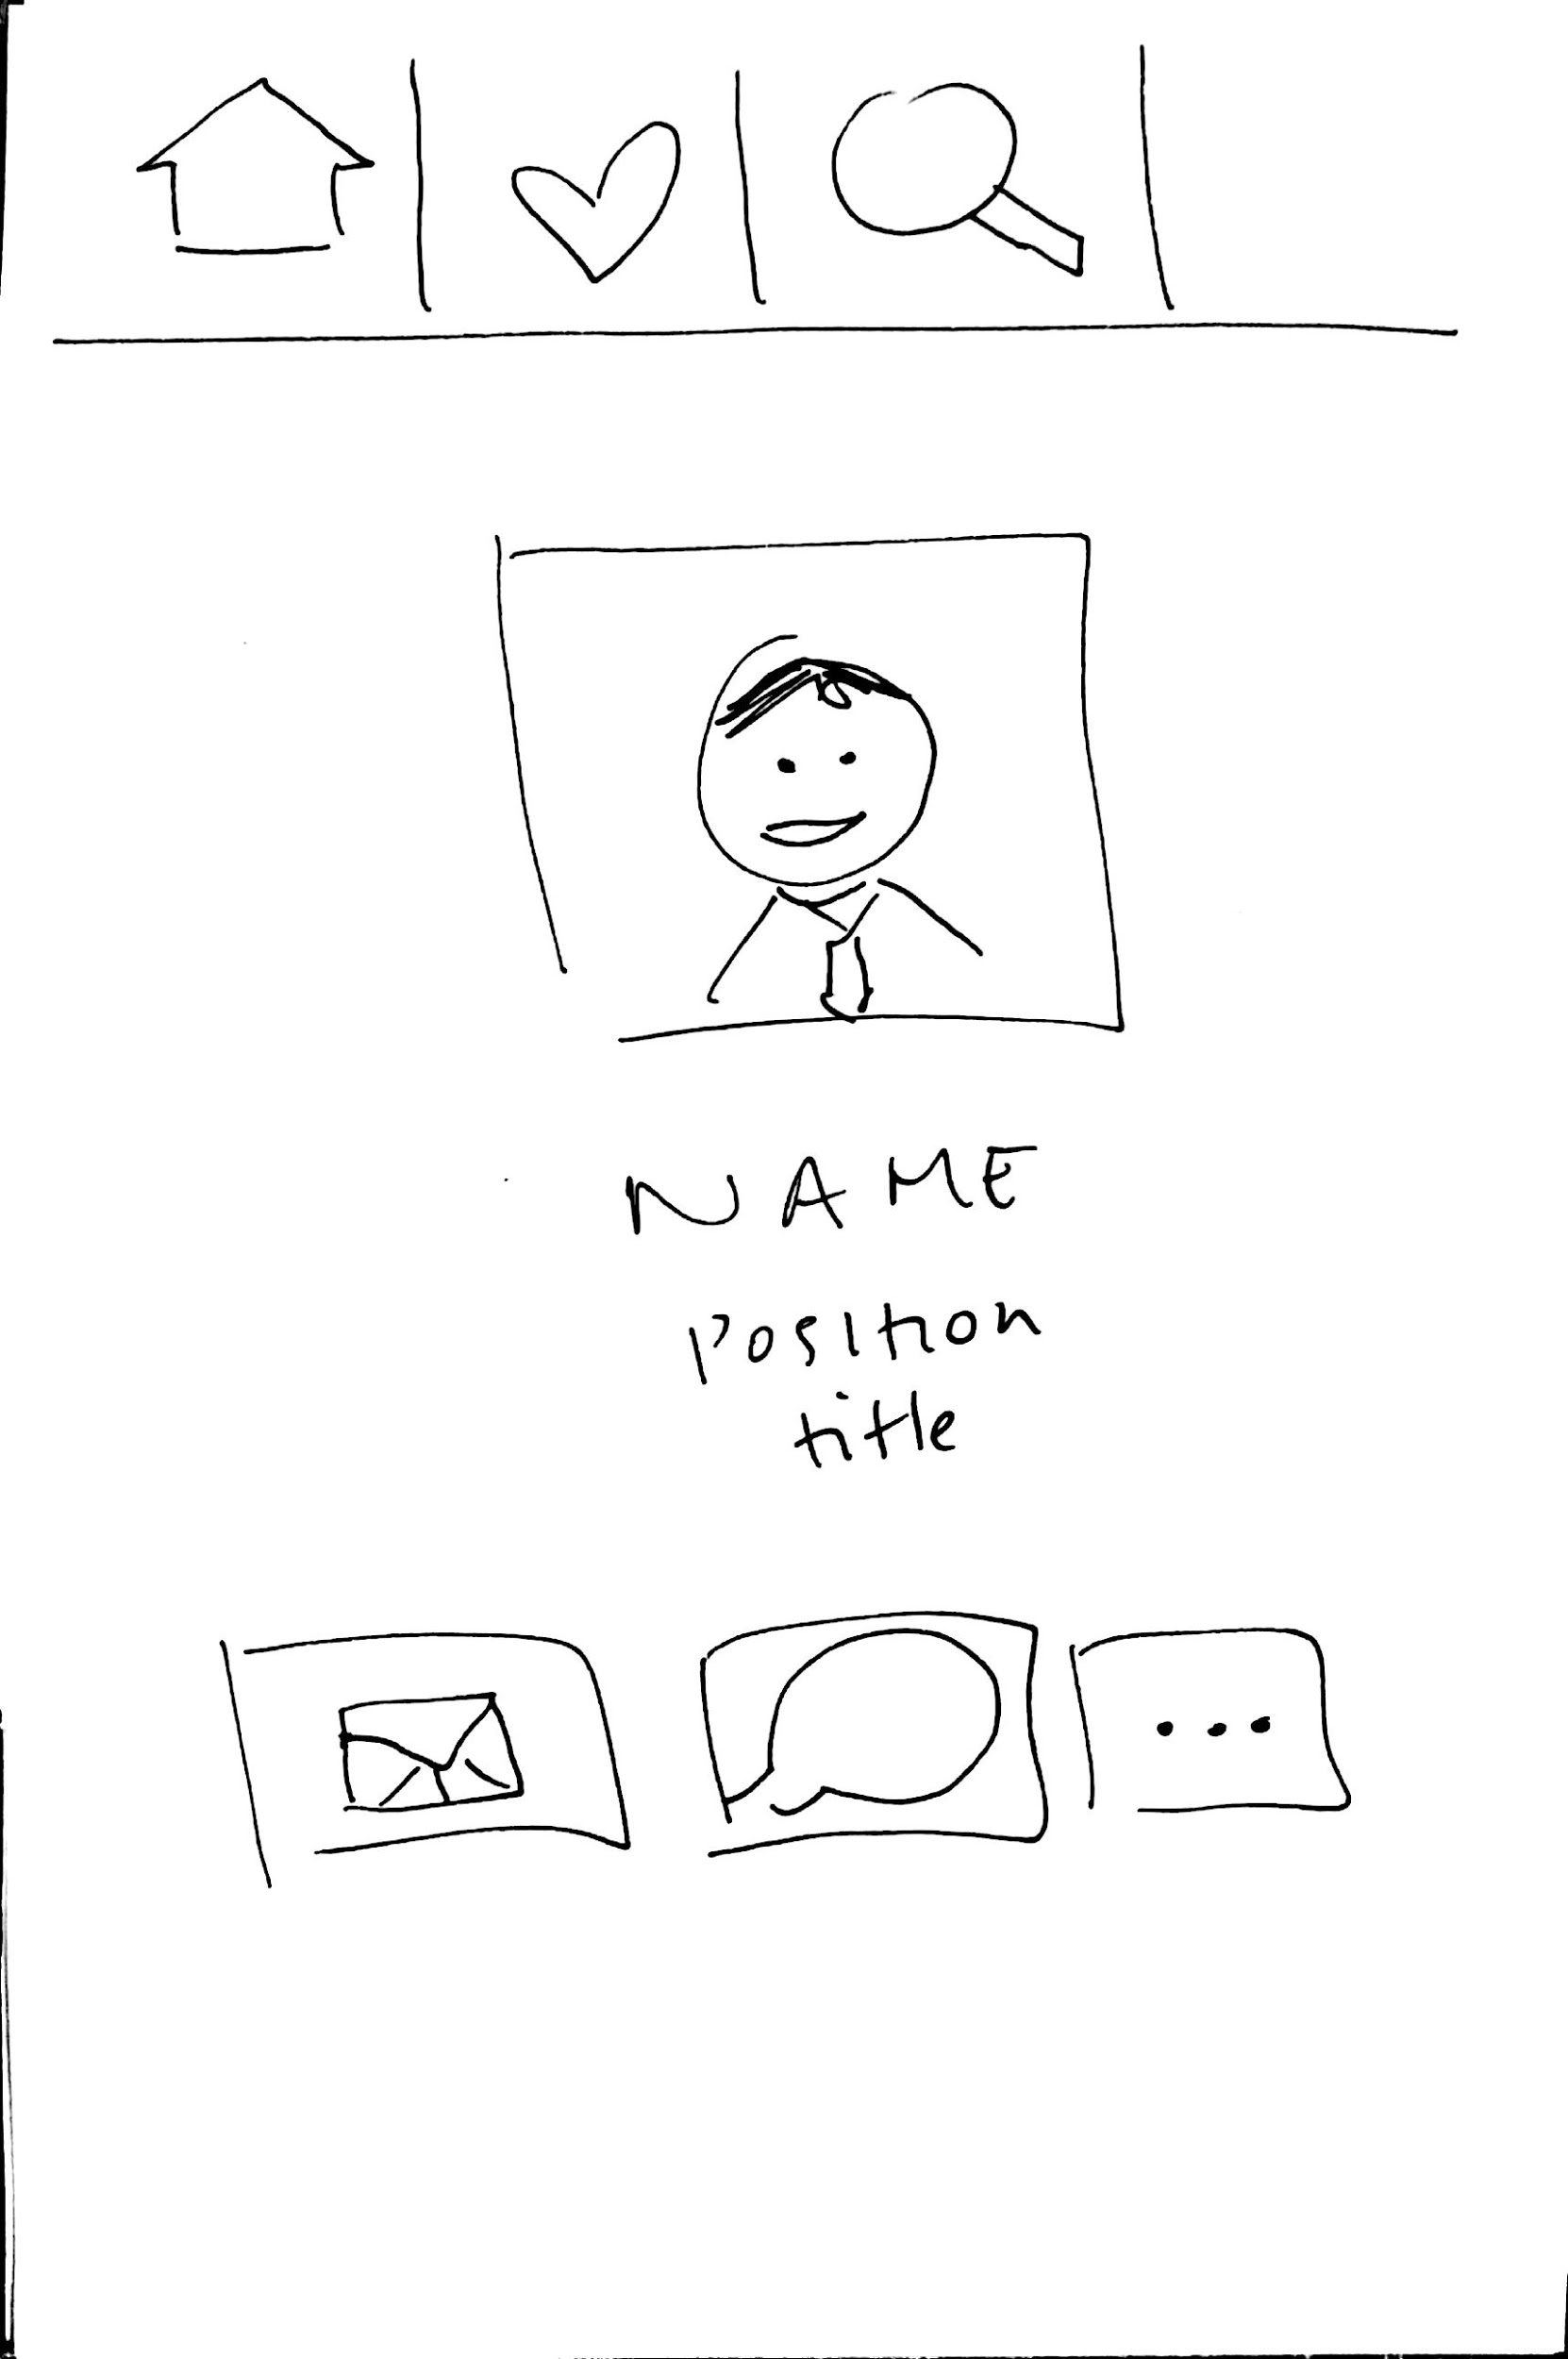 NAME
position
title